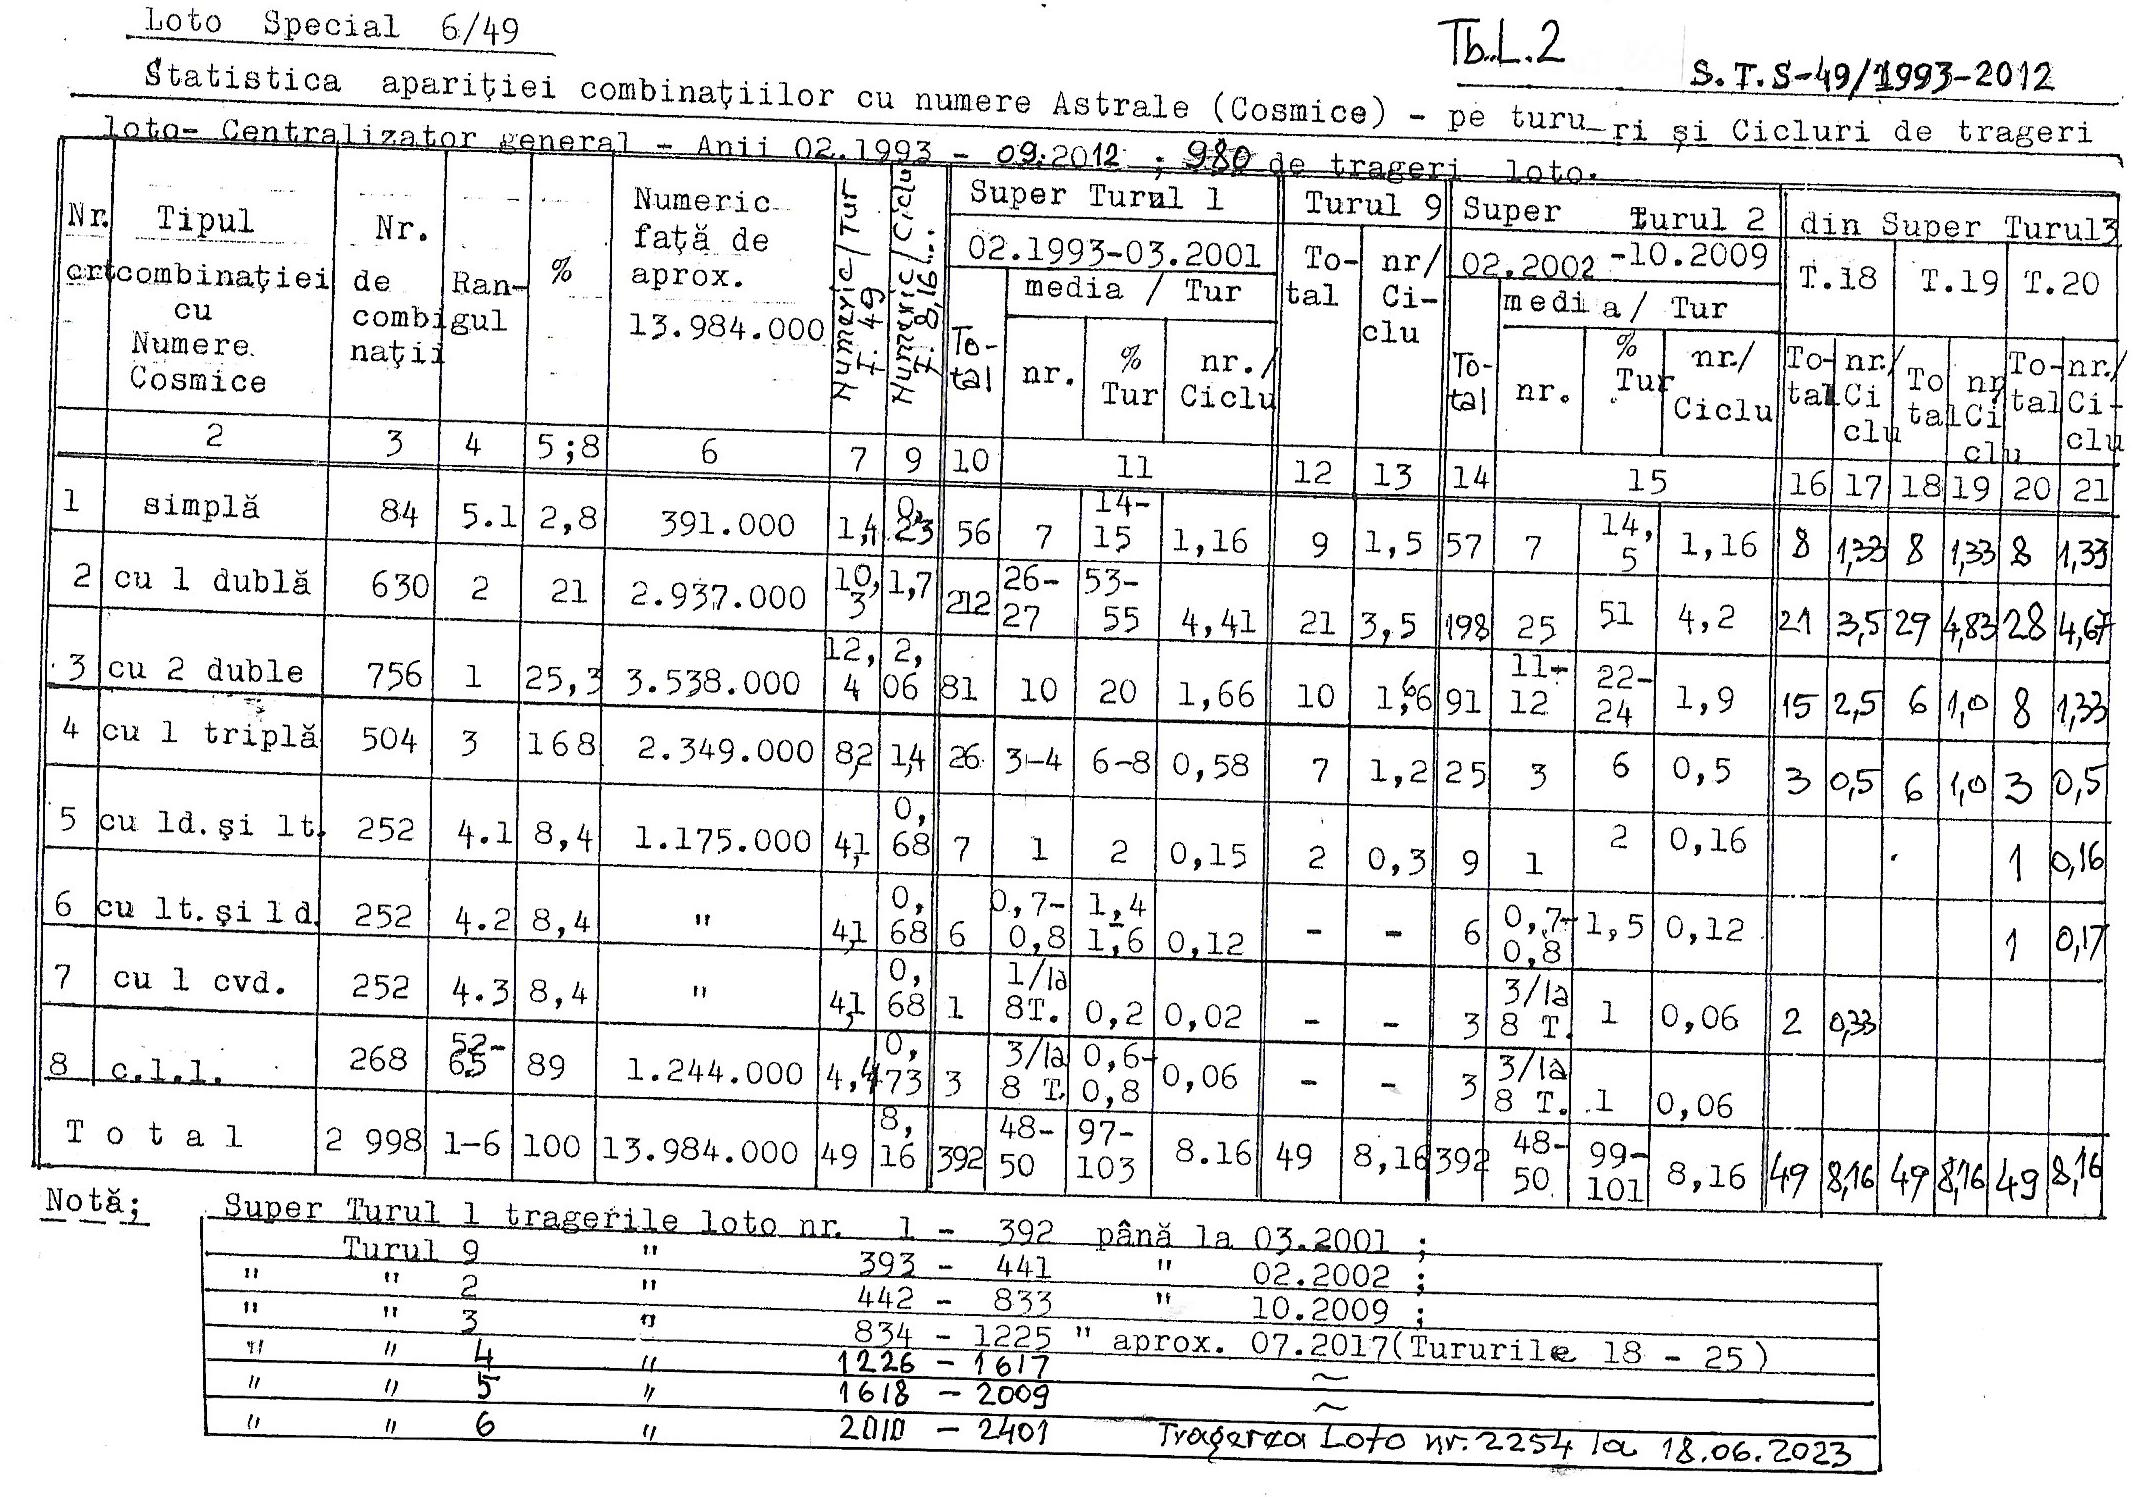 Loto Special 6/49
Tb.L.2
S.T.S-49/1993-2012
Statistica apariţiei combinaţiilor cu numere Astrale (Cosmice) - pe turu-ri şi Cicluri de trageri
loto- Centralizator general - Anii 02.1993 - 09.2012 ; 980 de trageri loto.
Nr. crt | Tipul combinaţiei cu Numere Cosmice | Nr. de combinaţii | Rangul | % | Numeric faţă de aprox. 13.984.000 | Numeric/Tur T. 49 | Numeric/Ciclu T. 8,16... | Super Turul 1 | Turul 9 | Super turul 2 | din Super Turul3
02.1993-03.2001 | Total | nr/Ciclu | 02.2002 -10.2009 | T.18 | T.19 | T.20
Total | media / Tur | Total | media / Tur | Total | nr./Ciclu | Total | nr/Ciclu | Total | nr./Ciclu
nr. | % Tur | nr./Ciclu | nr. | % Tur | nr./Ciclu
2 | 3 | 4 | 5;8 | 6 | 7 | 9 | 10 | 11 | 12 | 13 | 14 | 15 | 16 | 17 | 18 | 19 | 20 | 21
1 | simplă | 84 | 5.1 | 2,8 | 391.000 | 1,4 | 0,23 | 56 | 7 | 14-15 | 1,16 | 9 | 1,5 | 57 | 7 | 14,5 | 1,16 | 8 | 1,33 | 8 | 1,33 | 8 | 1,33
2 | cu 1 dublă | 630 | 2 | 21 | 2.937.000 | 10,3 | 1,7 | 212 | 26-27 | 53-55 | 4,41 | 21 | 3,5 | 198 | 25 | 51 | 4,2 | 21 | 3,5 | 29 | 4,83 | 28 | 4,67
3 | cu 2 duble | 756 | 1 | 25,3 | 3.538.000 | 12,4 | 2,06 | 81 | 10 | 20 | 1,66 | 10 | 1,66 | 91 | 11-12 | 22-24 | 1,9 | 15 | 2,5 | 6 | 1,0 | 8 | 1,33
4 | cu 1 triplă | 504 | 3 | 168 | 2.349.000 | 8,2 | 1,4 | 26 | 3-4 | 6-8 | 0,58 | 7 | 1,2 | 25 | 3 | 6 | 0,5 | 3 | 0,5 | 6 | 1,0 | 3 | 0,5
5 | cu 1d. şi 1t. | 252 | 4.1 | 8,4 | 1.175.000 | 4,1 | 0,68 | 7 | 1 | 2 | 0,15 | 2 | 0,3 | 9 | 1 | 2 | 0,16 | 1 | 0,16
6 | cu 1t. şi 1d. | 252 | 4.2 | 8,4 | " | 4,1 | 0,68 | 6 | 0,7-0,8 | 1,4-1,6 | 0,12 | - | - | 6 | 0,7-0,8 | 1,5 | 0,12 | 1 | 0,17
7 | cu 1 cvd. | 252 | 4.3 | 8,4 | " | 4,1 | 0,68 | 1 | 1/la 8T. | 0,2 | 0,02 | - | - | 3 | 3/la 8 T. | 1 | 0,06 | 2 | 0,33
8 | c.l.l. | 268 | 52-65 | 89 | 1.244.000 | 4,4 | 0,73 | 3 | 3/la 8 T. | 0,6-0,8 | 0,06 | - | - | 3 | 3/la 8 T. | 1 | 0,06
Total | 2 998 | 1-6 | 100 | 13.984.000 | 49 | 8,16 | 392 | 48-50 | 97-103 | 8.16 | 49 | 8,16 | 392 | 48-50 | 99-101 | 8,16 | 49 | 8,16 | 49 | 8,16 | 49 | 8,16
Notă;
Super Turul 1 tragerile loto nr. 1 - 392 până la 03.2001 ;
Turul 9 " 393 - 441 " 02.2002 ;
" " 2 " 442 - 833 " 10.2009 ;
" " 3 " 834 - 1225 " aprox. 07.2017(Tururile 18 - 25)
" " 4 " 1226 - 1617 ~
" " 5 " 1618 - 2009 ~
" " 6 " 2010 - 2401 Tragerea Loto nr.2254 la 18.06.2023